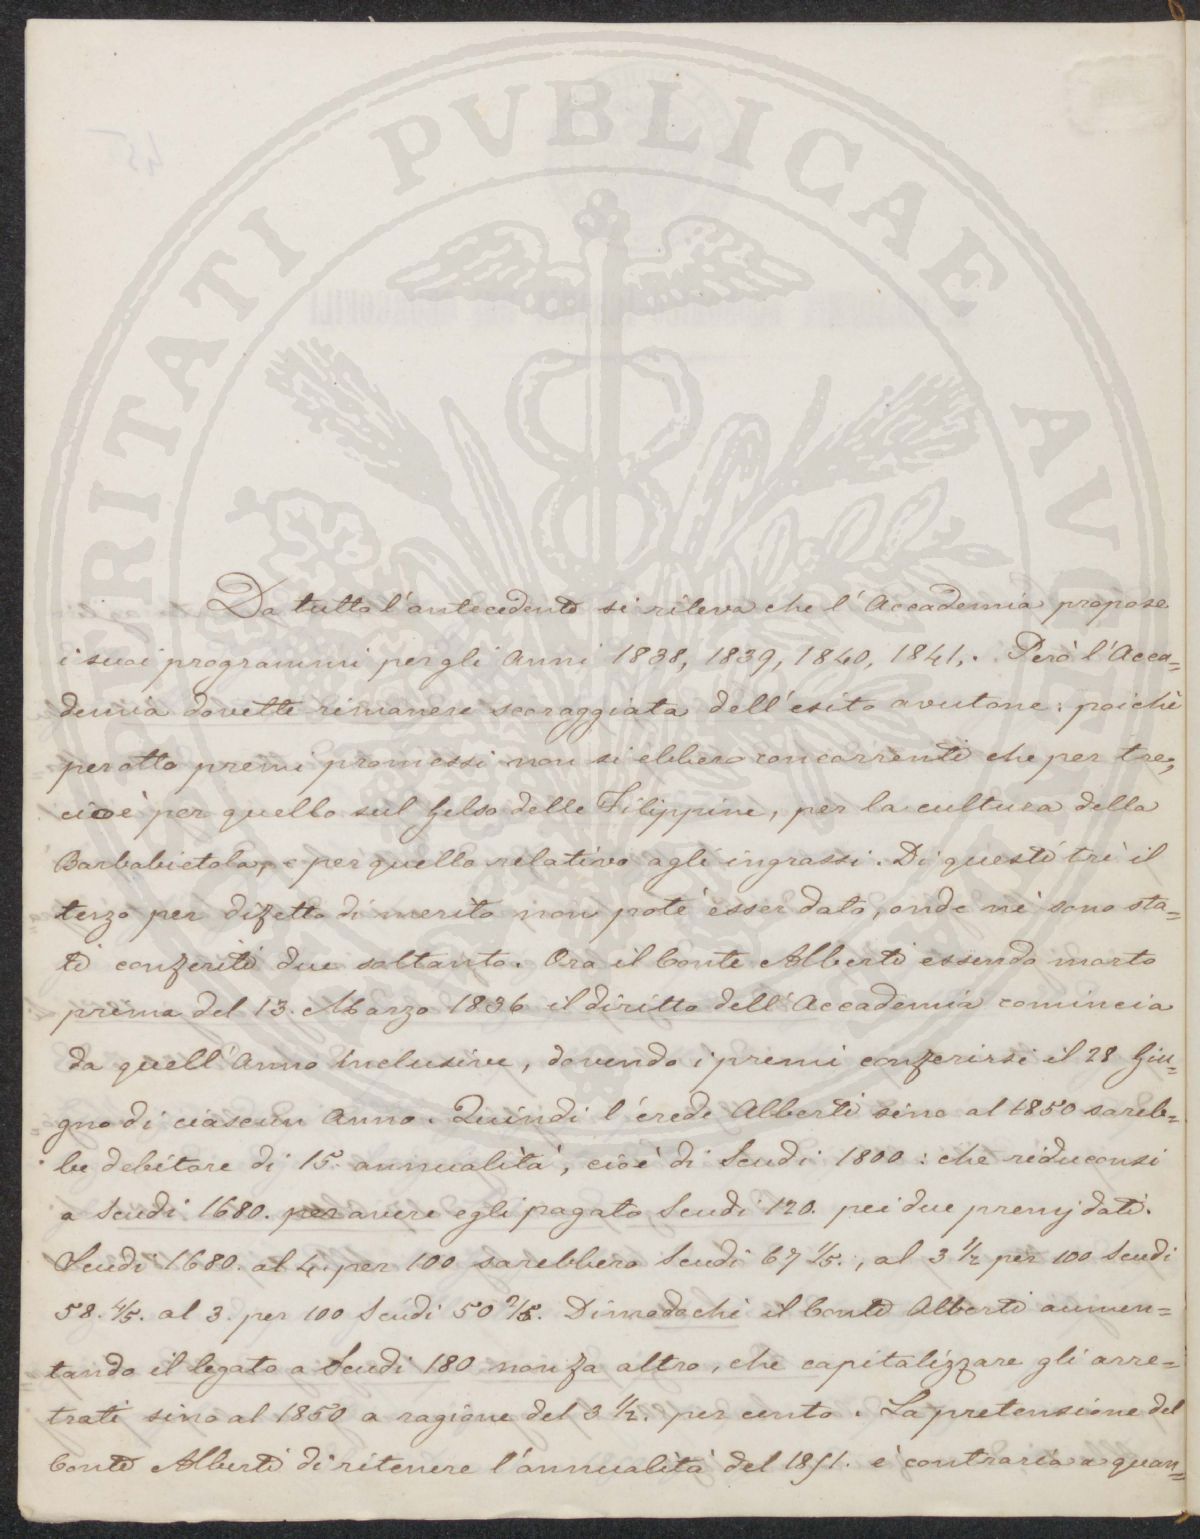 PROSPERITATI PVBLICAE AVGENDAE
Da tutto l'antecedente si rileva che l'Accademia propose
i suoi programmi per gli Anni 1838, 1839, 1840, 1841,. Però l'Acca=
demia dovette rimanere scoraggiata dell'esito avutone; poichè
per otto premi promessi non si ebbero concorrenti che per tre;
cioè per quello sul Gelso delle Filippine, per la cultura della
Barbabietola, e per quello relativo agli ingrassi. Di questi trè il
terzo per difetto di merito non potè esser dato, onde nè sono sta=
ti conferiti due soltanto. Ora il Conte Alberti essendo morto
prima del 13. Marzo 1836 il diritto dell'Accademia comincia
da quell'Anno inclusive, dovendo i premi conferirsi il 28 Giu=
gno di ciascun Anno. Quindi l'erede Alberti sino al 1850 sareb=
be debitore di 15. annualità, cioè di Scudi 1800: che riduconsi
a Scudi 1680. per avere egli pagato Scudi 120. pei due premj dati.
Scudi 1680. al 4. per 100 sarebbero Scudi 67 1/5., al 3 1/2 per 100 Scudi
58. 4/5. al 3. per 100 Scudi 50 2/5. Dimodochè il Conte Alberti aumen=
tando il legato a Scudi 180 non fa altro, che capitalizzare gli arre=
trati sino al 1850 a ragione del 3 1/2. per cento. La pretensione del
Conte Alberti di ritenere l'annualità del 1851. è contraria a quan=